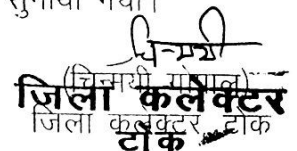 सुनाया गया।
चिन्मयी
(चिन्मयी गोपाल)
जिला कलेक्टर
जिला कलक्टर टोंक
टोंक